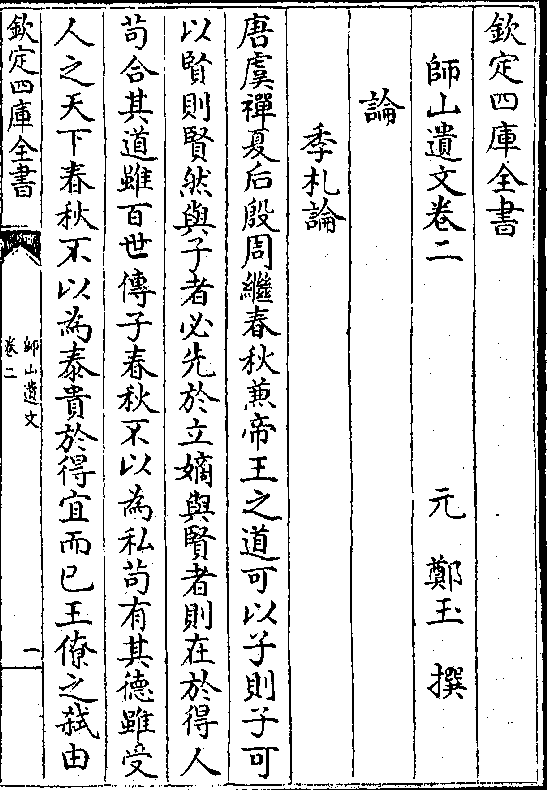 欽定四庫全書
師山遺文卷二
元 鄭玉 撰
論
季札論
唐虞禪夏后殷周繼春秋蕉帝王之道可以子則子可
以賢則賢然與子者必先於立嫡與賢者則在於得人
苟合其道雖百世傳子春秋不以為私苟有其德雖受
人之天下春秋不以為泰貴於得宜而已王僚之弑由
欽定四庫全書
師山遺文
卷二
一